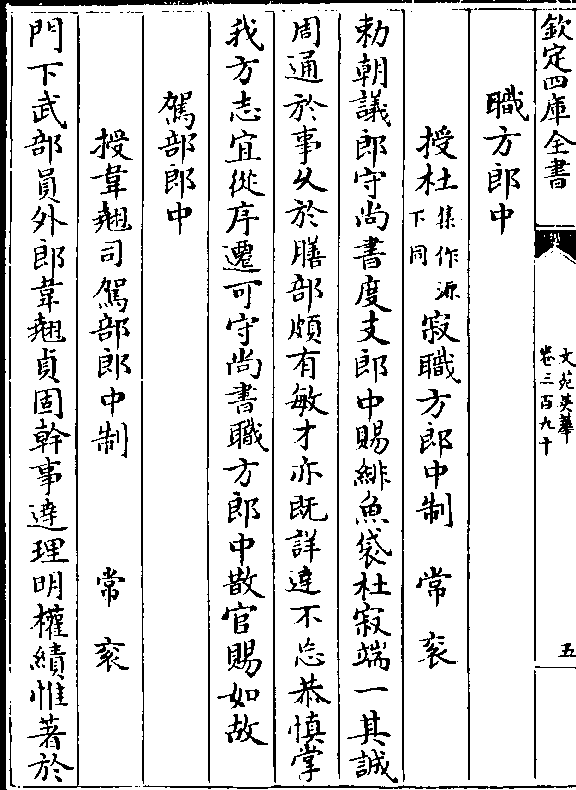 欽定四庫全書
文苑英華
卷三百九十
五
職方郎中
授杜集作源下同寂職方郎中制　常衮
勅朝議郎守尚書度支郎中賜緋魚袋杜寂端一其誠
周通於事乆於膳部頗有敏才亦既詳達不忘恭慎掌
我方志宜從序遷可守尚書職方郎中散官賜如故
駕部郎中
授韋翹司駕部郎中制　常衮
門下武部員外郎韋翹貞固幹事達理明權績惟著於